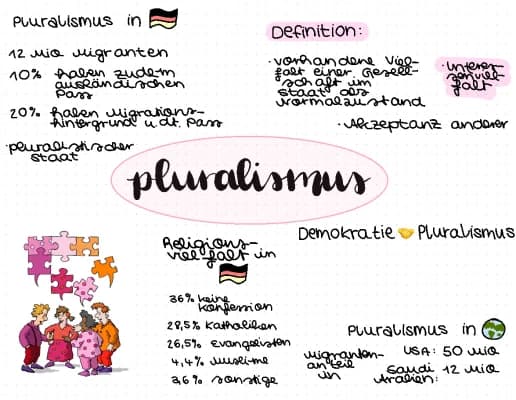 Pluralismus in
12 Mio Migranten
10% haben zudem
ausländischen
Pass
20% haben Migrations-
hintergrund u. dt. Pass
·pluralistischer
Staat
Definition:
·vorhandene Viel-
falt einer Gesell-
schaft im
Staat als
Normalzustand
·Interes-
senviel-
falt
·Akzeptanz anderer
pluralismus
Religions-
vielfalt in
36% keine
Konfession
28,5% Katholiken
26,5% Evangelisten
4,4% Muslime
3,6% sonstige
Demokratie Pluralismus
Pluralismus in
Migranten-
anteil
in
USA: 50 Mio
Saudi 12 Mio
Arabien: